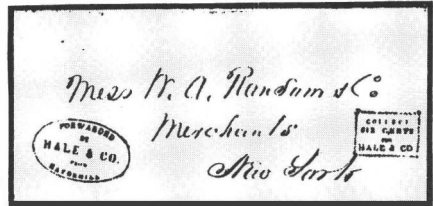 Mess W. A. Ransom & Co
Merchants
New York
FORWARDED
BY
HALE & CO.
FROM
HAVERHILL
COLLECT
SIX CENTS
FOR
HALE & CO